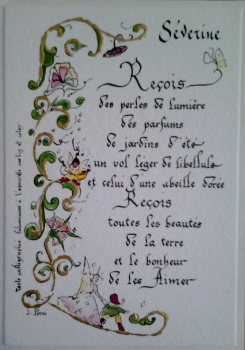 Séverine
Reçois
des perles de lumière
des parfums
de jardins d'été
un vol léger de libellule
et celui d'une abeille dorée
Reçois
toutes les beautés
de la terre
et le bonheur
de les Aimer
Texte calligraphié